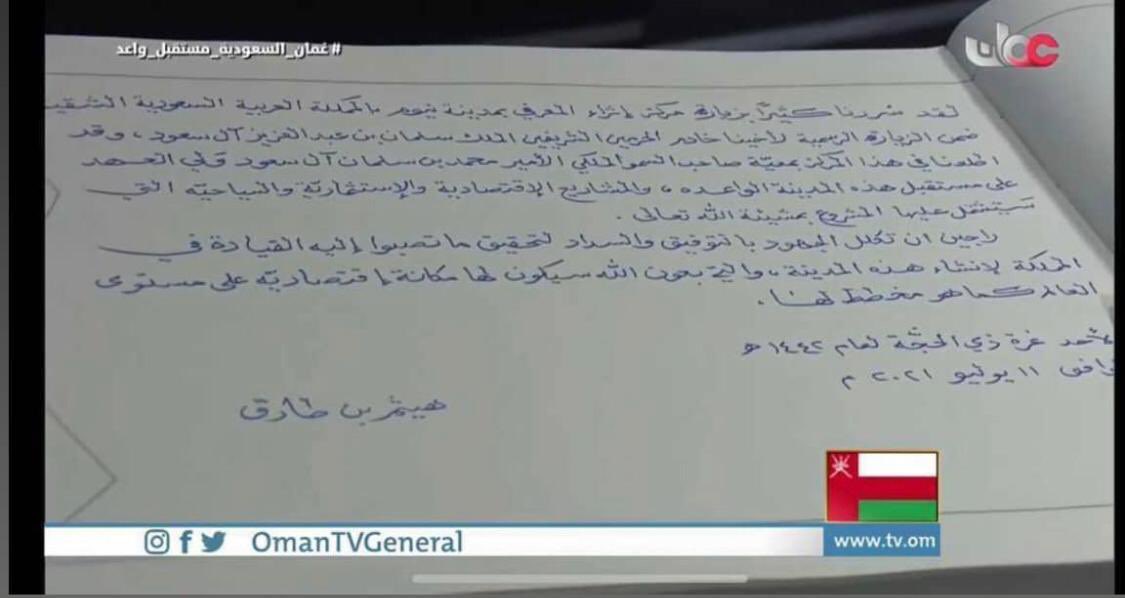 #عُمان_السعودية_مستقبل_واعد
عمان
لقد سُررنا كثيراً بزيارة مركز إثراء المعرفي بمدينة نيوم بالمملكة العربية السعودية الشقيقة
ضمن الزيارة الرسمية لأخينا خادم الحرمين الشريفين الملك سلمان بن عبد العزيز آل سعود ، وقد
اطلعنا في هذا المركز بمعيّة صاحب السمو الملكي الأمير محمد بن سلمان آل سعود ولي العهد
على مستقبل هذه المدينة الواعده ، والمشاريع الإقتصادية والإستثماريّة والسياحيّه التي
سيشتمل عليها المشروع بمشيئة الله تعالى .
راجين ان تكلل الجهود بالتوفيق والسداد لتحقيق ما تصبوا إليه القيادة في
المملكة لإنشاء هذه المدينة ، والتي بعون الله سيكون لها مكانة إقتصاديّه على مستوى
العالم كما هو مخطط لها .
الأحد غرة ذي الحجّة لعام ١٤٤٢ ه
الموافق ١١ يوليو ٢٠٢١ م
هيثم بن طارق
OmanTVGeneral
www.tv.om